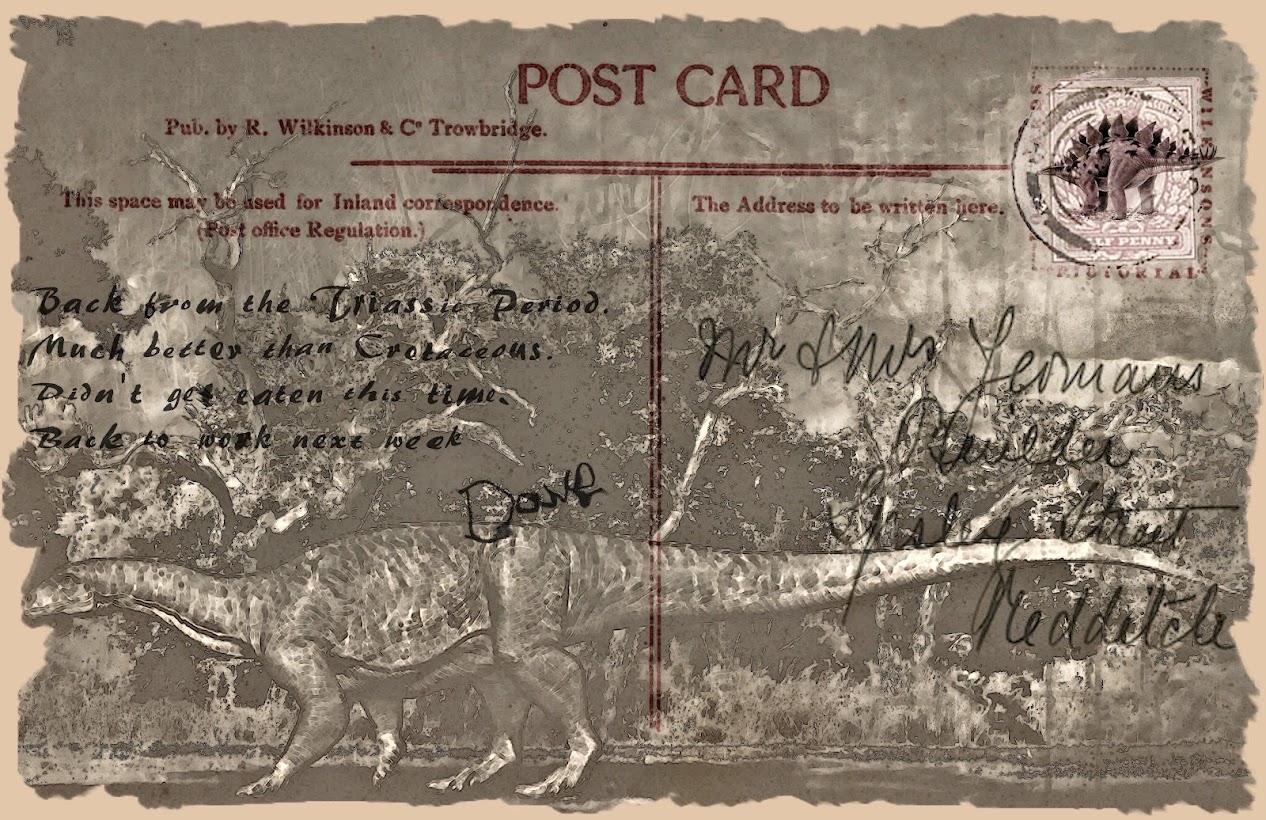 POST CARD
Pub. by R. Wilkinson & Co Trowbridge.
This space may be used for Inland correspondence.
(Post office Regulation.)
The Address to be written here.
WILKINSONS
PICTORIAL
HALF PENNY
Back from the Triassic Period.
Much better than Cretaceous.
Didn't get eaten this time.
Back to work next week
Dave
Mr & Mrs Yeomans
Street
Redditch